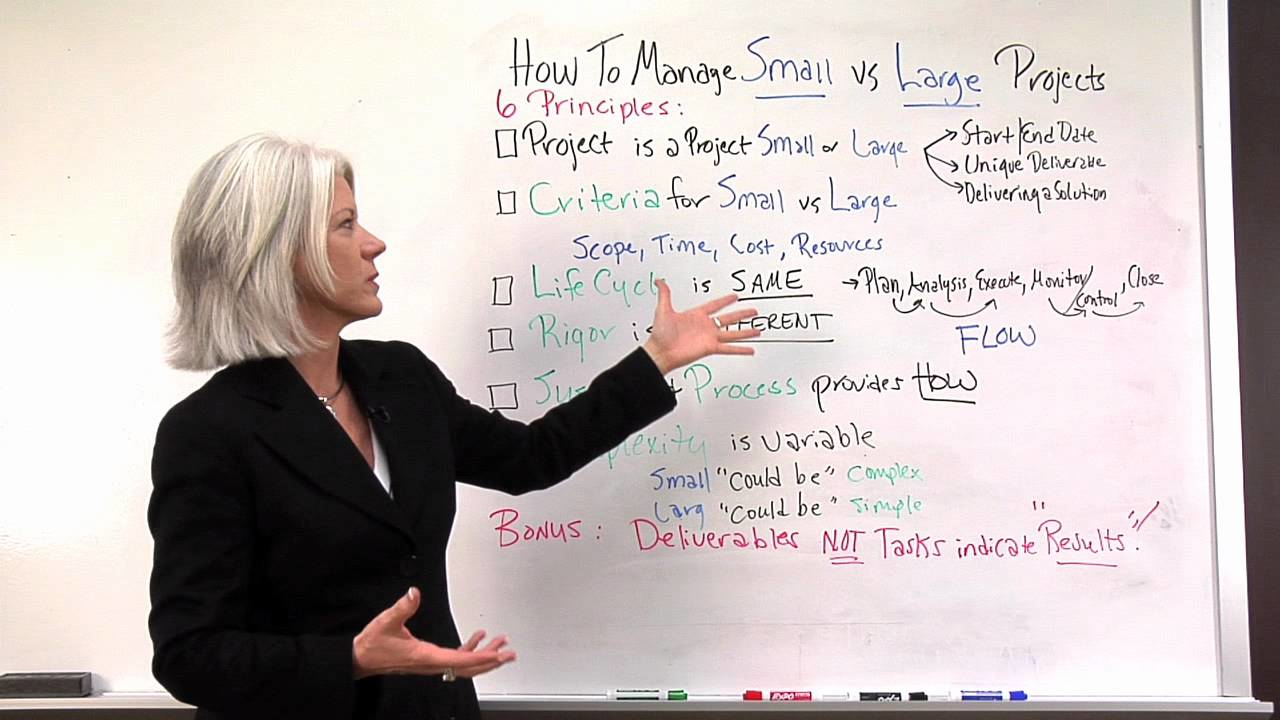 How To Manage Small vs Large Projects
6 Principles:
Project is a Project Small or Large
Start/End Date
Unique Deliverable
Delivering a Solution
Criteria for Small vs Large
Scope, Time, Cost, Resources
Life Cycle is SAME → Plan, Analysis, Execute, Monitor/Control, Close
Rigor is FERENT
FLOW
Process provides How
plexity is variable
Small "Could be" Complex
Larg "Could be" Simple
Bonus: Deliverables NOT Tasks indicate "Results!"
EXPO